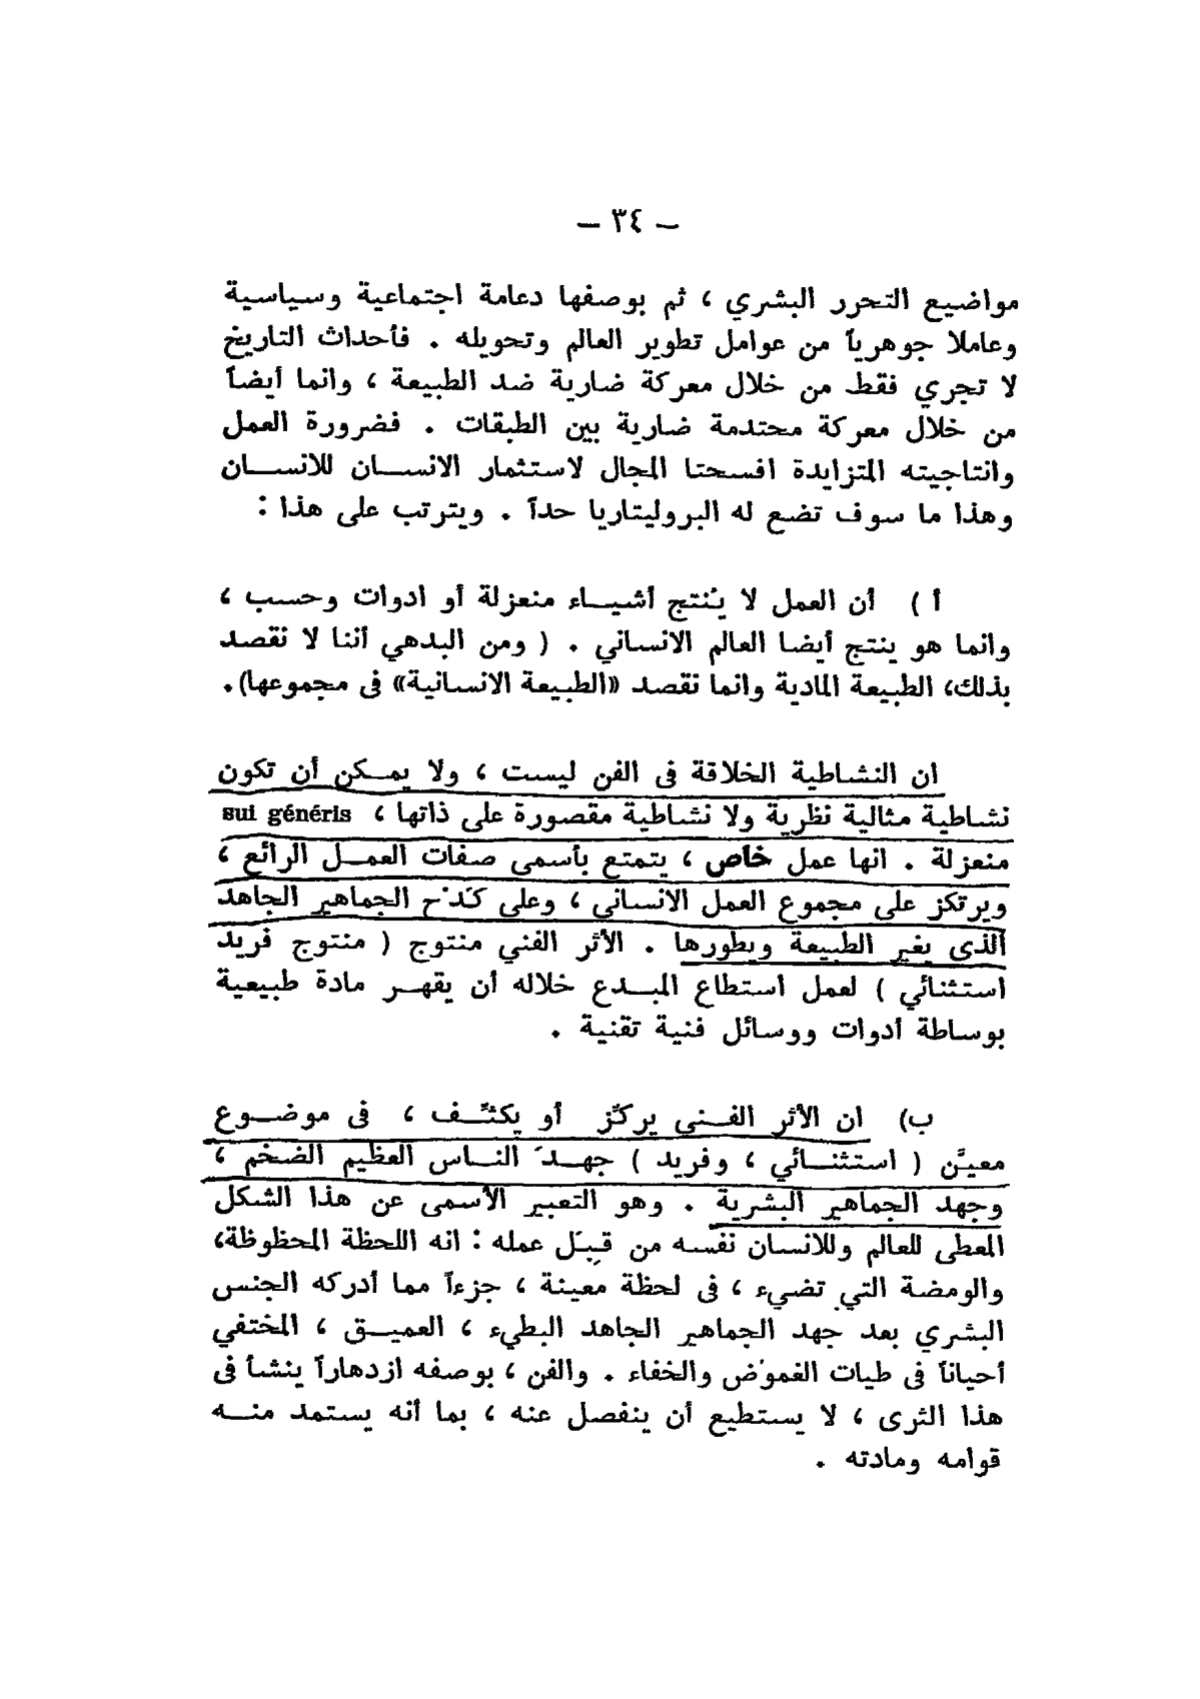 — ٣٤ —
مواضيع التحرر البشري ، ثم بوصفها دعامة اجتماعية وسياسية
وعاملا جوهرياً من عوامل تطوير العالم وتحويله . فأحداث التاريخ
لا تجري فقط من خلال معركة ضارية ضد الطبيعة ، وانما أيضاً
من خلال معركة محتدمة ضارية بين الطبقات . فضرورة العمل
وانتاجيته المتزايدة افسحتا المجال لاستثمار الانسان للانسان
وهذا ما سوف تضع له البروليتاريا حداً . ويترتب على هذا :
أ ) أن العمل لا يُنتج أشياء منعزلة أو ادوات وحسب ،
وانما هو ينتج أيضا العالم الانساني . ( ومن البدهي أننا لا نقصد
بذلك، الطبيعة المادية وانما نقصد «الطبيعة الانسانية» فى مجموعها).
ان النشاطية الخلاقة فى الفن ليست ، ولا يمكن أن تكون
نشاطية مثالية نظرية ولا نشاطية مقصورة على ذاتها ، sui généris
منعزلة . انها عمل خاص ، يتمتع بأسمى صفات العمل الرائع ،
ويرتكز على مجموع العمل الانساني ، وعلى كَدْح الجماهير الجاهد
الذى يغير الطبيعة ويطورها . الأثر الفني منتوج ( منتوج فريد
استثنائي ) لعمل استطاع المبدع خلاله أن يقهر مادة طبيعية
بوساطة أدوات ووسائل فنية تقنية .
ب) ان الأثر الفني يركّز أو يكثّف ، فى موضوع
معيَّن ( استثنائي ، وفريد ) جهدَ الناس العظيم الضخم ،
وجهد الجماهير البشرية . وهو التعبير الأسمى عن هذا الشكل
المعطى للعالم وللانسان نفسه من قِبَل عمله : انه اللحظة المحظوظة،
والومضة التي تضيء ، فى لحظة معينة ، جزءاً مما أدركه الجنس
البشري بعد جهد الجماهير الجاهد البطيء ، العميق ، المختفي
أحياناً فى طيات الغموض والخفاء . والفن ، بوصفه ازدهاراً ينشأ فى
هذا الثرى ، لا يستطيع أن ينفصل عنه ، بما أنه يستمد منه
قوامه ومادته .